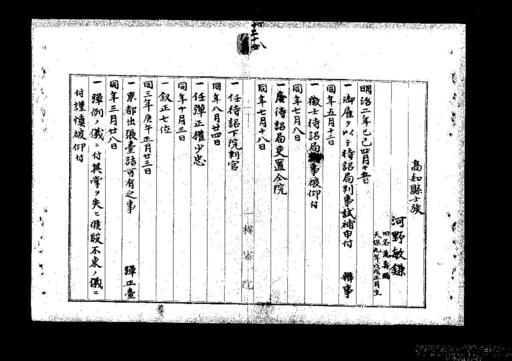 高知縣士族
河野敏鎌
旧名萬壽彌
明治二年己巳四月十五日
一御雇ヲ以テ待詔局判事試補申付 辨事
同年五月十二日
一徴士待詔局 事被仰付
同年七月八日
一廃待詔局更置令院
同年七月十八日
一任待詔下院判官
同年八月廿四日
一任彈正權少忠
同年十月三日
一叙正七位
同三年庚午正月廿三日
一京都出張臺詰可有之事 彈正臺
同年三月廿八日
一彈例ノ儀ニ付其掌ヲ失ヒ候段不束ノ儀ニ
付謹慎被仰付
樞密院